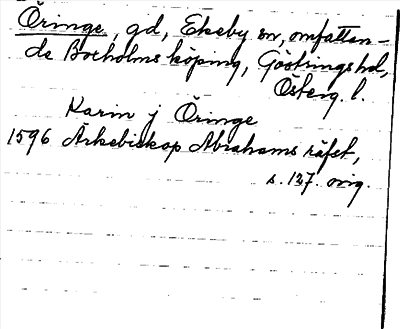 Öringe, gd, Ekeby sn, omfattan-
de Boxholms köping, Göstrings hd,
Österg. l.
Karin j Öringe
1596 Ärkebiskop Abrahams räfst,
s. 137. orig.